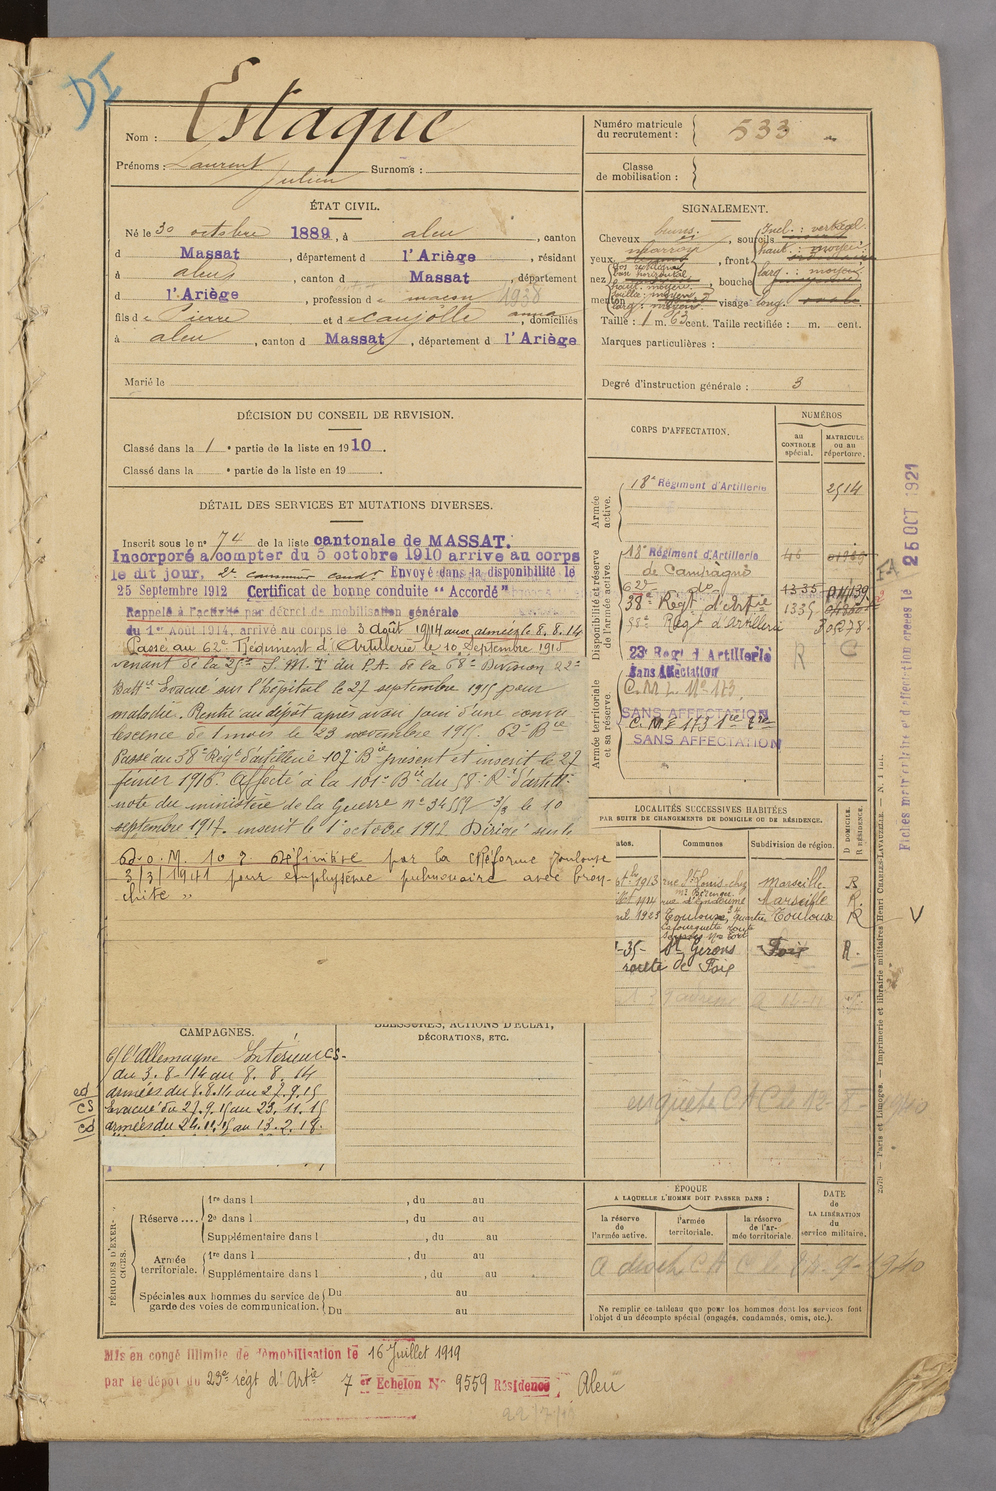 DI
Nom : Estaque
Prénoms : Laurent Surnoms :
Julien
Numéro matricule
du recrutement : 533
Classe
de mobilisation :
ÉTAT CIVIL.
Né le 30 octobre 1889, à aleu, canton
d Massat, département d l'Ariège, résidant
à aleu, canton d Massat, département
d l'Ariège, profession d e maçon 1938
fils d e Pierre et d e caujolle anna, domiciliés
à aleu, canton d Massat, département d l'Ariège
Marié le
SIGNALEMENT.
Cheveux bruns, sourcils
yeux marrons, front
Incl. : vertical.
haut. : moyen.
larg. : moyen.
nez, bouche
Dos rectiligne
base horizontale
haut. moyenne
saillie moyenne
larg. moyenne
menton visage long.
Taille : 1 m. 63 cent. Taille rectifiée : m. cent.
Marques particulières :
Degré d'instruction générale : 3
DÉCISION DU CONSEIL DE REVISION.
Classé dans la 1e partie de la liste en 1910.
Classé dans la e partie de la liste en 19 .
CORPS D'AFFECTATION.
NUMÉROS
au
CONTROLE
spécial.
MATRICULE
ou au
répertoire.
Armée
active.
18e Régiment d'Artillerie 2514
Disponibilité et réserve
de l'armée active.
18e Régiment d'Artillerie
de Campagne
62e do 1335
38e Regt d'Artie 1335
58e Regt d'Artillerie
23e Regt d'Artillerie R C
Sans Affectation
Armée territoriale
et sa réserve.
C. M. I. No 173
SANS AFFECTATION
C. M. I 173
SANS AFFECTATION
Fiches matriculaire et d'affectation créées le 25 OCT 1921
DÉTAIL DES SERVICES ET MUTATIONS DIVERSES.
Inscrit sous le no 74 de la liste cantonale de MASSAT.
Incorporé à compter du 5 octobre 1910 arrivé au corps
le dit jour, 2e canonnier condr Envoyé dans la disponibilité le
25 Septembre 1912 Certificat de bonne conduite "Accordé"
Rappelé à l'activité par décret de mobilisation générale
du 1er Août 1914, arrivé au corps le 3 août 1914 aux armées le 8.8.14
Passé au 62e Régiment d'Artillerie le 10 Septembre 1915
venant de la 25e S.M.I du P.A. de la 68e Division 22e
Battie Evacué sur l'hôpital le 27 septembre 1915 pour
maladie. Rentré au dépôt après avoir joui d'une conva
lescence de 1 mois le 23 novembre 1915. 62e Bie
Passé au 58e Régt d'artillerie 107e Bie présent et inscrit le 27
février 1916. Affecté à la 101e Bie du 58e Rt d'artill.
note du ministère de la Guerre no 34559 3/3 le 10
septembre 1917. inscrit le 1er octobre 1917 Dirigé sur le
Définitive par la C Réforme Toulouse
3/3/1941 pour emphysème pulmonaire avec bron-
chite "
LOCALITÉS SUCCESSIVES HABITÉES
PAR SUITE DE CHANGEMENTS DE DOMICILE OU DE RÉSIDENCE.
ates.
Communes
Subdivision de région.
D DOMICILE.
R RÉSIDENCE.
1913 rue St Louis chez Marseille R
1914 rue d'Endoume Marseille R.
1925 Toulouse, quartier Toulouse R
Lafourguette route
-35- St Girons Foix R.
route de Foix
V
enquête C A C le 12-8-1940
CAMPAGNES.
c/ l'Allemagne Intérieures-
du 3.8.14 au 8.8.14
armées du 8.8.14 au 27.9.15
Evacué du 27.9.15 au 23.11.15
armées du 24.11.15 au 13.2.18.
BLESSURES, ACTIONS D'ÉCLAT,
DÉCORATIONS, ETC.
PÉRIODES D'EXER-
CICES.
Réserve ....
1re dans l , du au
2e dans l , du au
Supplémentaire dans l , du au
Armée
territoriale.
1re dans l , du au
Supplémentaire dans l , du au
Spéciales aux hommes du service de
garde des voies de communication.
Du au
Du au
ÉPOQUE
A LAQUELLE L'HOMME DOIT PASSER DANS :
la réserve
de
l'armée active.
l'armée
territoriale.
la réserve
de l'ar-
mée territoriale.
DATE
de
LA LIBÉRATION
du
service militaire.
Ne remplir ce tableau que pour les hommes dont les services font
l'objet d'un décompte spécial (engagés, condamnés, omis, etc.).
Paris et Limoges. — Imprimerie et librairie militaires Henri CHARLES-LAVAUZELLE.
Mis en congé illimité de démobilisation le 16 Juillet 1919
par le dépôt du 23e régt d'Artie 7 er Echelon No 9559 Résidence Aleu